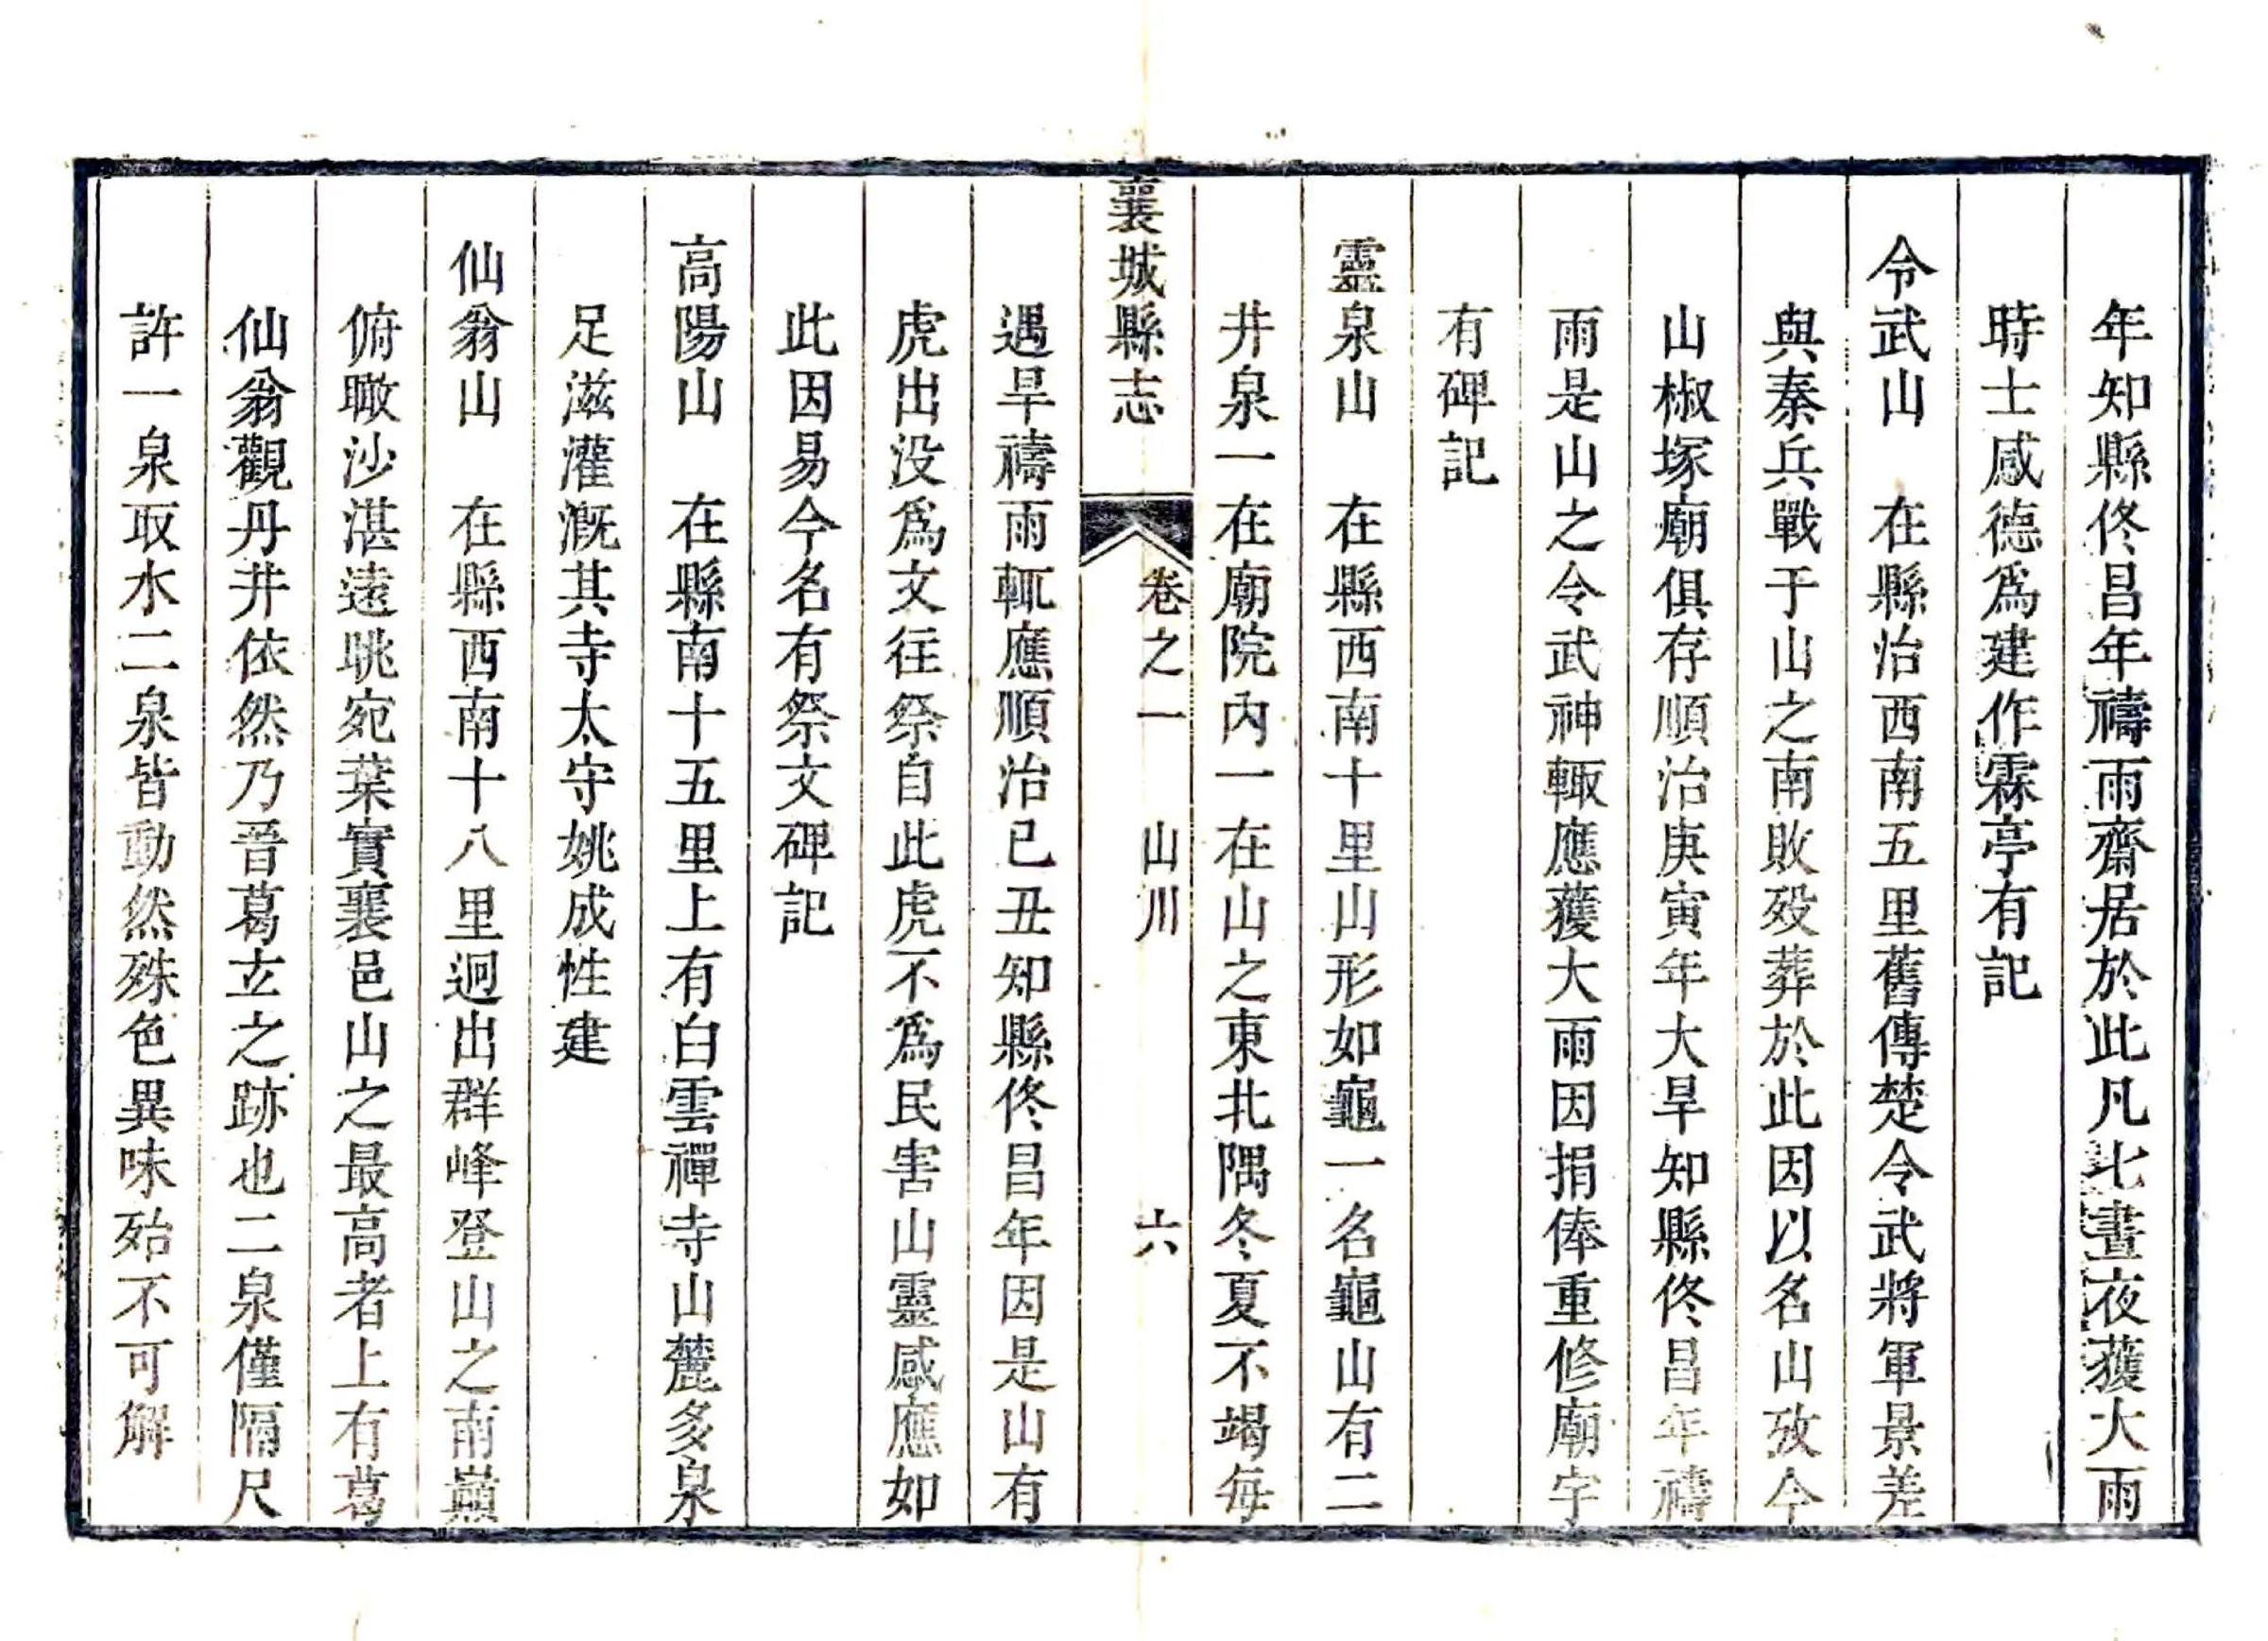 年知縣佟昌年禱雨齋居於此凡七晝夜獲大雨
時士感德爲建作霖亭有記
令武山　在縣治西南五里舊傳楚令武將軍景差
與秦兵戰于山之南敗歿葬於此因以名山攷今
山椒塚廟俱存順治庚寅年大旱知縣佟昌年禱
雨是山之令武神輙應獲大雨因捐俸重修廟宇
有碑記
靈泉山　在縣西南十里山形如龜一名龜山有二
井泉一在廟院內一在山之東北隅冬夏不竭每
襄城縣志　卷之一　山川　六
遇旱禱雨輒應順治己丑知縣佟昌年因是山有
虎出没爲文往祭自此虎不爲民害山靈感應如
此因易今名有祭文碑記
高陽山　在縣南十五里上有白雲禪寺山麓多泉
足滋灌漑其寺太守姚成性建
仙翁山　在縣西南十八里迥出群峰登山之南巔
俯瞰沙湛遠眺宛葉實襄邑山之最高者上有葛
仙翁觀丹井依然乃晉葛玄之跡也二泉僅隔尺
許一泉取水二泉皆動然殊色異味殆不可解